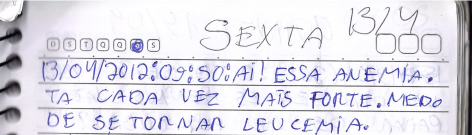 SEXTA 13/4
D S T Q Q S S
13/04/2012:09:50:AI! ESSA ANEMIA.
TA CADA VEZ MAIS FORTE. MEDO
DE SE TORNAR LEUCEMIA.